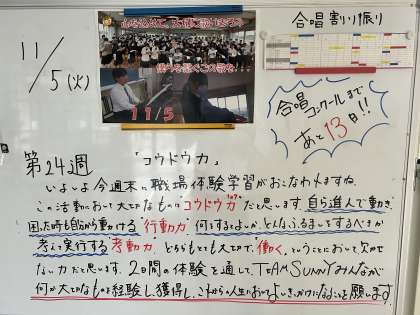 心を込めて、大切に歌い上げろう
僕らを繋ぐこの歌を!!!
11/5
合唱割り振り
11/5(火)
合唱
コンクールまで
あと13日!!
第24週 「コウドウ力」
いよいよ今週末に職場体験学習がおこなわれますね。
この活動において大切なものは"コウドウ力"だと思います。自ら進んで動き、
困った時も自分から動ける"行動力" 何をするとよいか、どんなふるまいをするべきか
考えて実行する"考動力" どちらもとても大切で、働くということにおいて欠かせ
ない力だと思います。2日間の体験を通して、TEAM SUNNYみんなが
何か大切なものを経験し、獲得し、これからの人生においてよいきっかけになることを願います。